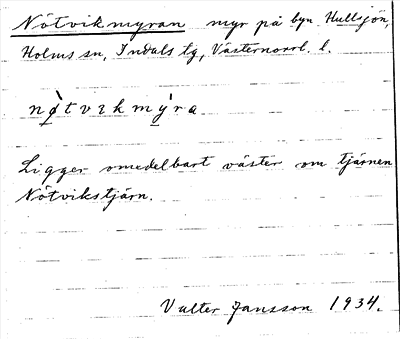 Nötvikmyran myr på byn Hullsjön,
Holms sn, Indals tg, Västernorrl. l.
nø̀tvɛkmý̠ra
Ligger omedelbart väster om tjärnen
Nötvikstjärn.
Valter Jansson 1934.